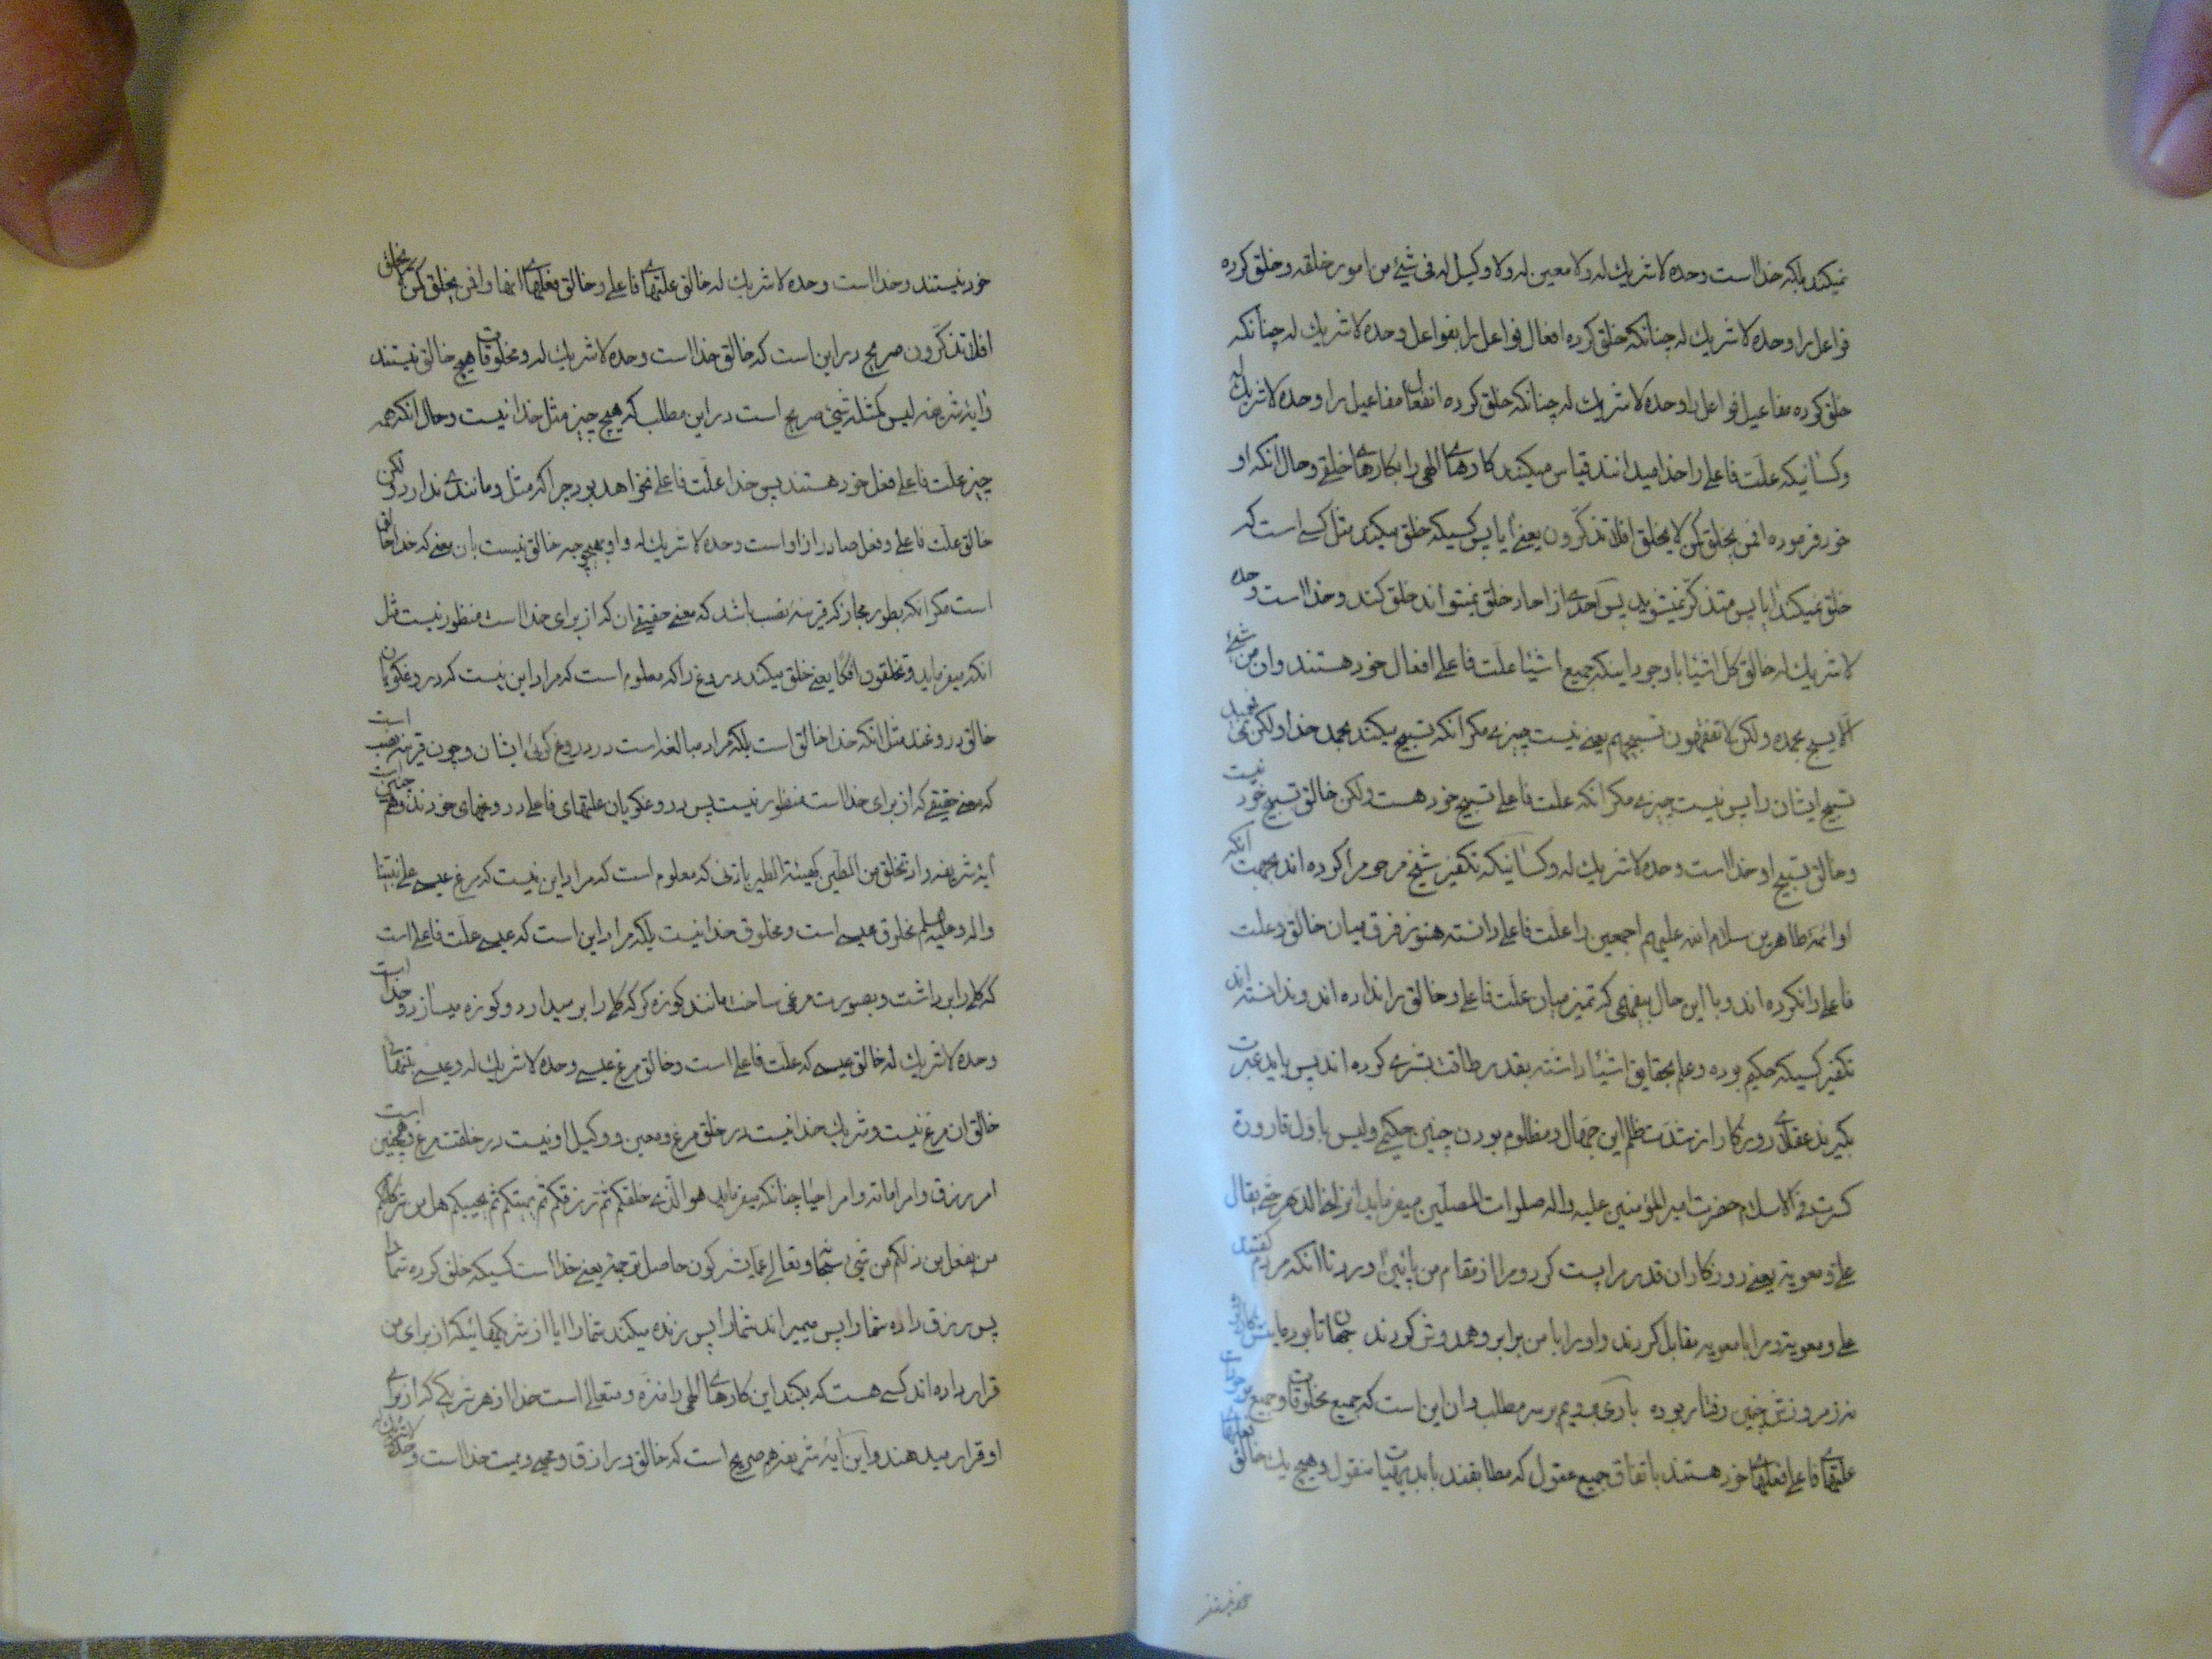 نمیکند بلکه خدا است وحده لا شریك له ولا معین له ولا وکیل له فی شیئ من امور خلقه و خلق کرده
فواعل را وحده لا شریك له چنانکه خلق کرده افعال فواعل را بفواعل وحده لا شریك له چنانکه
خلق کرده مفاعیل فواعل را وحده لا شریك له چنانکه خلق کرده انفعال مفاعیل را وحده لا شریك له
و کسانیکه علّت فاعلی را خدا میدانند قیاس میکنند کارهای الهی را بکارهای خلقی و حال انکه او
خود فرموده افمن یخلق کمن لا یخلق افلا تذکّرون یعنی ایا پس کسیکه خلق میکند مثل کسی است که
خلق نمیکند ایا پس متذکّر نمیشوید پس احدی از احاد خلق نمیتواند خلق کند و خدا است وحده
لا شریك له خالق کل اشیا با وجود اینکه جمیع اشیا علّت فاعلی افعال خود هستند وان من شیئ
الّا یسبح بحمده ولکن لا تفقهون تسبیحهم یعنی نیست چیزی مگر انکه تسبیح میکند بحمد خدا ولکن نمی فهمید
تسبیح ایشان را پس نیست چیزی مگر انکه علّت فاعلی تسبیح خود هست ولکن خالق تسبیح خود نیست
و خالق تسبیح او خدا است وحده لا شریك له و کسانیکه تکفیر شیخ مرحوم را کرده اند بجهت انکه
او ائمّه طاهرین سلام الله علیهم اجمعین را علّت فاعلی دانسته هنوز فرق میان خالق و علّت
فاعلی را نکرده اند و با این حال بیفهمی که تمیز میان علّت فاعلی و خالق را نداده اند و ندانسته اند
تکفیر کسیکه حکیم بوده و علم بحقایق اشیا داشته بقدر طاقت بشری کرده اند پس باید عبرت
بگیرند عقلای روزگار از شدّت ظلم این جهال و مظلوم بودن چنین حکیمی ولیس باوّل قارورة
کسرت فی الاسلام حضرت امیر المؤمنین علیه واله صلوات المصلّین میفرماید انزلنی الدّهر حتّی یقال
علی و معویة یعنی روزگار ان قدر مرا پست کرد و مرا از مقام من پائین اورد تا انکه مردم گفتند
علی و معویة و مرا با معویه مقابل کردند و او را با من برابر و همدوش کردند جهان تا بوده
نه زامروزش چنین رفتار بوده باری برویم بر سر مطلب و ان این است که جمیع مخلوقات و جمیع
علّتهای فاعلی فعلهای خود هستند باتفاق جمیع عقول که مطابقند با بدیهیات منقول و هیچ یك خالق
خود نیستند
خود نیستند و خدا است وحده لا شریك له خالق علّتهای فاعلی و خالق فعلهای انها و افمن یخلق کمن لا یخلق
افلا تذکّرون صریح در این است که خالق خدا است وحده لا شریك له و مخلوقات هیچ خالق نیستند
و ایهٔ شریفه لیس کمثله شیئ صریح است در این مطلب که هیچ چیز مثل خدا نیست و حال انکه همه
چیز علّت فاعلی فعل خود هستند پس خدا علّت فاعلی نخواهد بود چرا که مثل و مانندی ندارد ولکن
خالق علّت فاعلی و فعل صادر از او است وحده لا شریك له و او بهیچوجه خالق نیست بان معنی که خدا خالق
است مگر انکه بطور مجاز که قرینه نصب باشد که معنی حقیقی ان که از برای خدا است منظور نیست مثل
انکه میفرماید و تخلقون افکا یعنی خلق میکنند دروغ را که معلوم است که مراد این نیست که دروغگویان
خالق دروغند مثل انکه خدا خالق است بلکه مراد مبالغه است در دروغ گوئی ایشان و چون قرینه نصب است
که معنی حقیقی که از برای خدا است منظور نیست پس دروغگویان علتهای فاعلی دروغهای خودند و همچنین است
ایهٔ شریفه و اذ تخلق من الطّین کهیئة الطیر باذنی که معلوم است که مراد این نیست که مرغ عیسی علی نبیّنا
واله و علیه السلم مخلوق عیسی است و مخلوق خدا نیست بلکه مراد این است که عیسی علّت فاعلی است
که گلی را برداشت و بصورت مرغی ساخت مانند کوزه گر که گل را بر میدارد و کوزه میسازد و خدا است
وحده لا شریك له خالق عیسی که علّت فاعلی است و خالق مرغ عیسی وحده لا شریك له و عیسی بتنهائی
خالق ان مرغ نیست و شریك خدا نیست در خلق مرغ و معین و وکیل او نیست در خلقت مرغ و همچنین است
امر رزق و امر اماته و امر احیا چنانکه میفرماید هو الّذی خلقکم ثم رزقکم ثم یمیتکم ثم یحییکم هل من شرکائکم
من یفعل من ذلکم من شیئ سبحانه و تعالی عمّا یشرکون حاصل ترجمه یعنی خدا است کسیکه خلق کرده شما را
پس رزق داده شما را پس میمیراند شما را پس زنده میکند شما را ایا از شریکهائیکه از برای من
قرار داده اند کسی هست که بکند این کارهای الهی را منزّه و متعالی است خدا از هر شریکی که از برای
او قرار میدهند و این ایهٔ شریفه هم صریح است که خالق و رازق و محیی و ممیت خدا است وحده لا شریك له